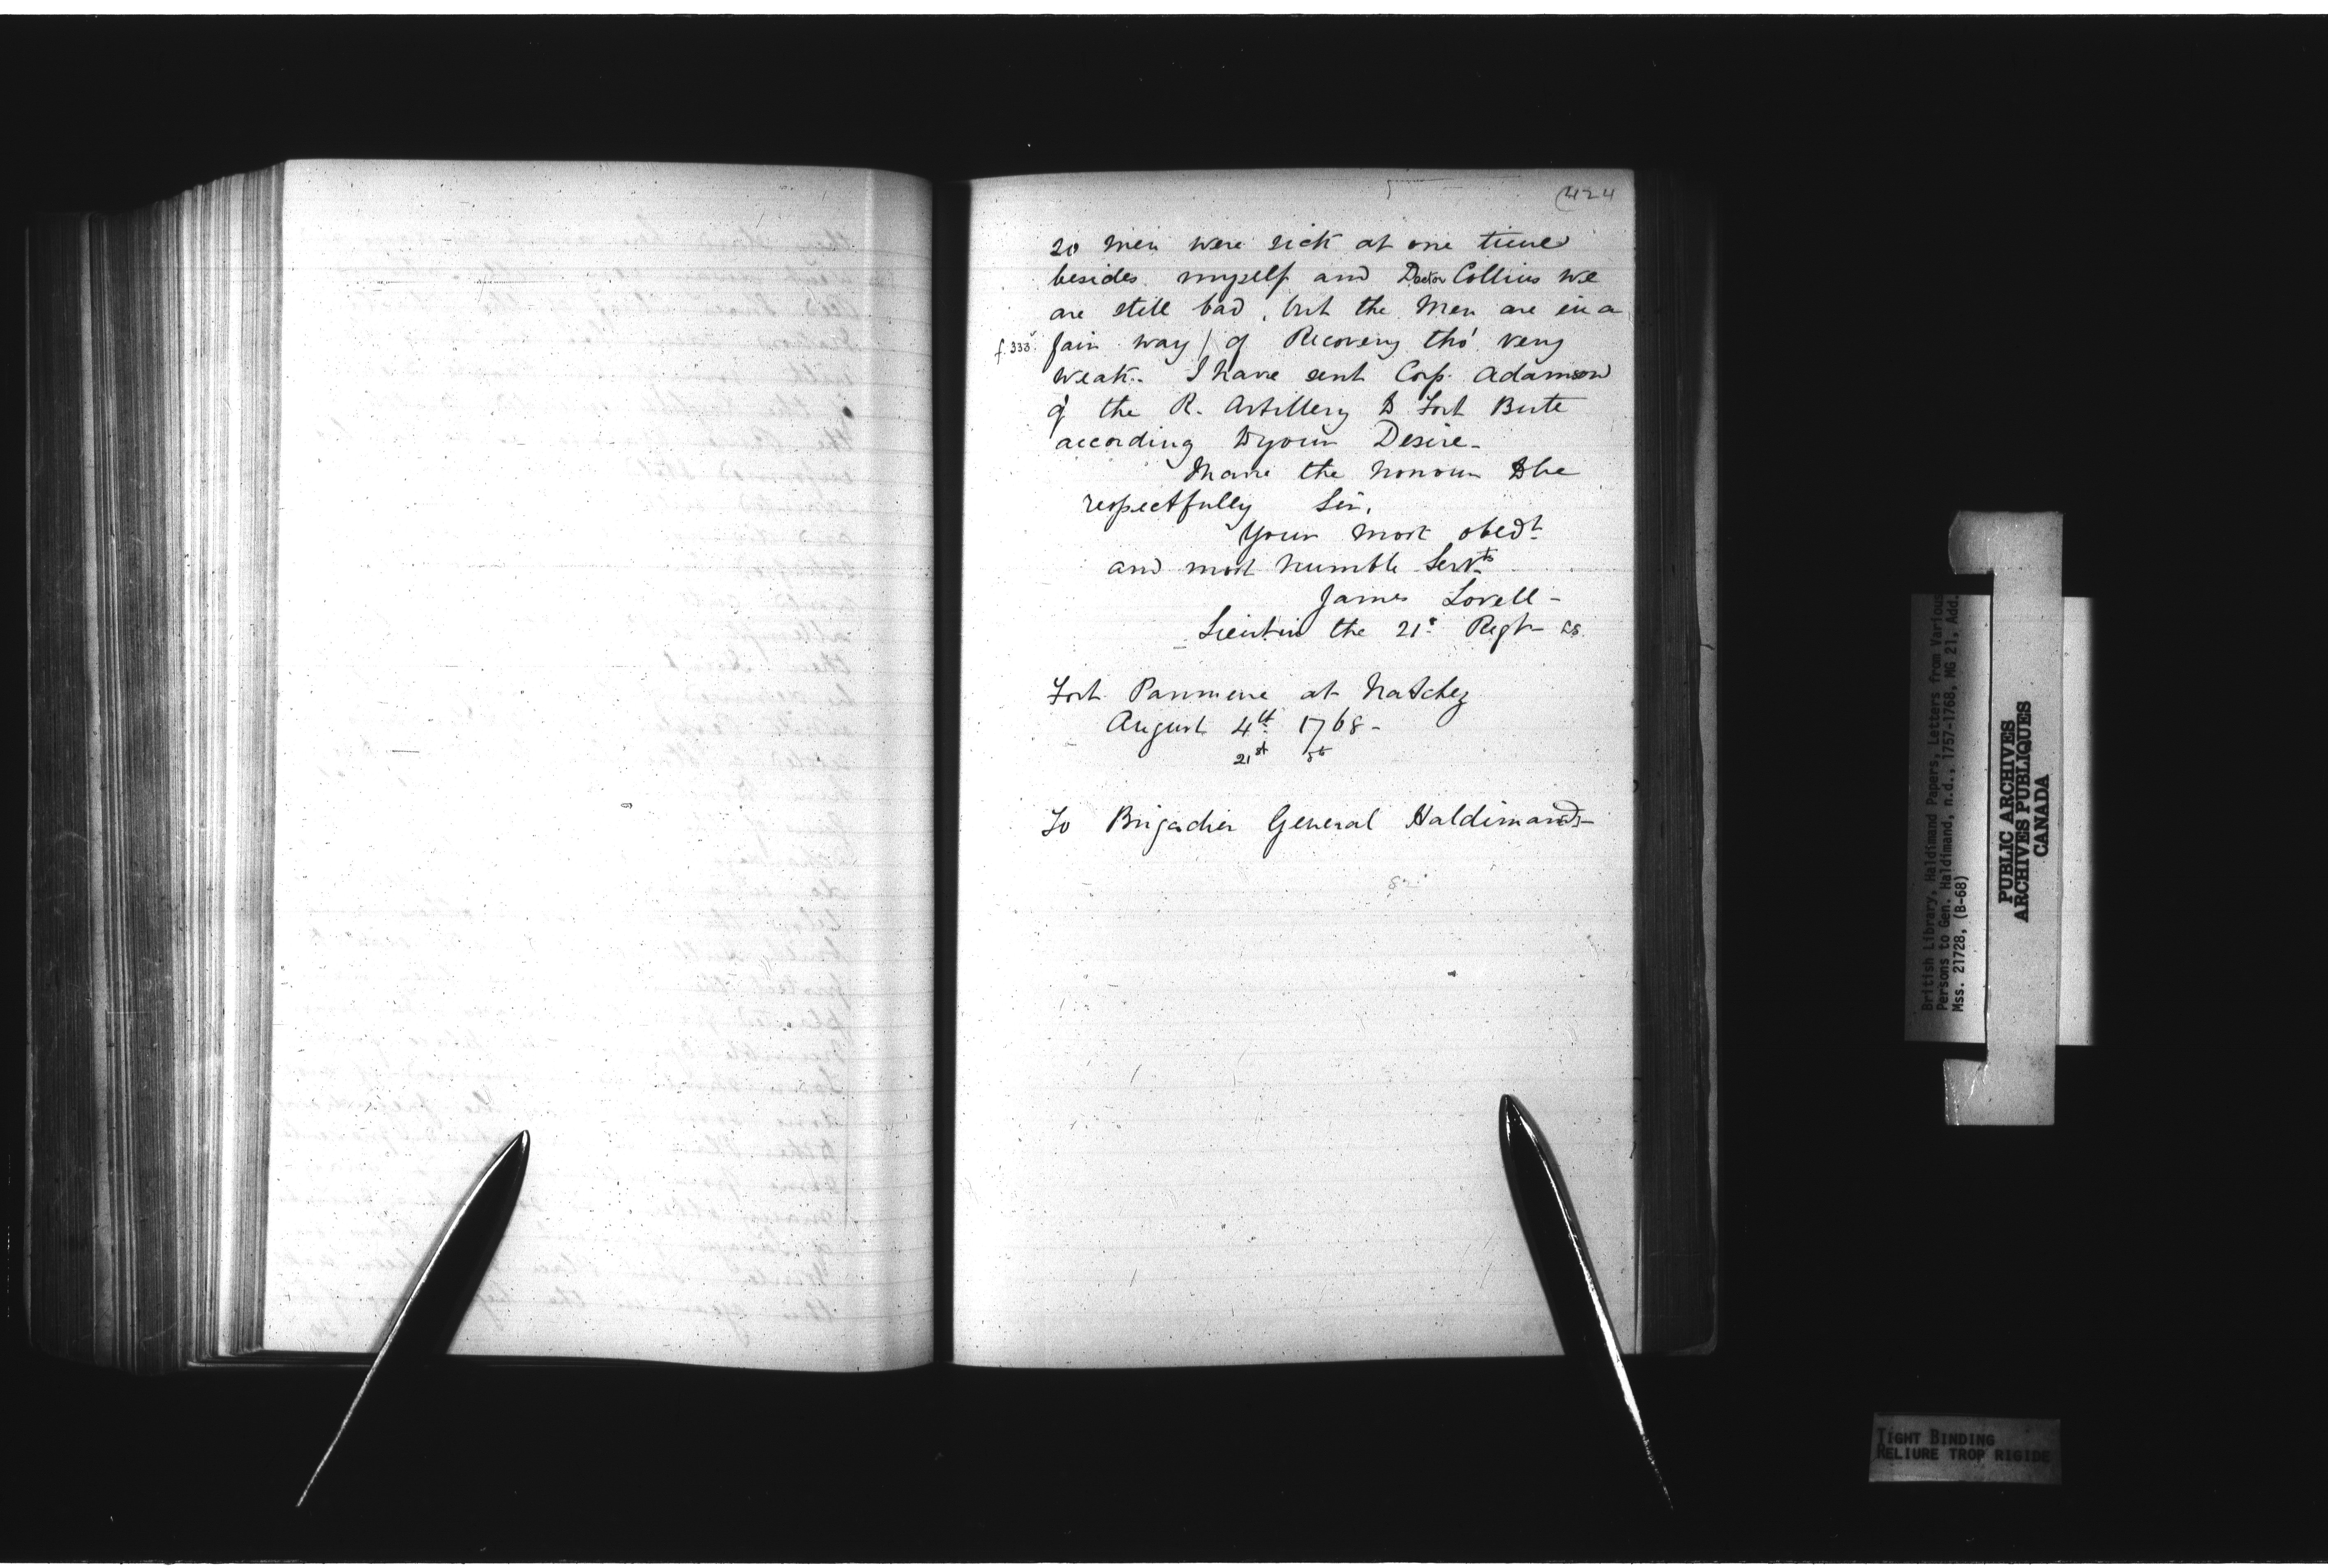 (424
20 Men were sick at one time
besides myself and Doctor Collins we
are still bad, but the Men are in a
f. 333. fair way / of Recovery tho' very
weak. I have sent Corp. Adamson
of the R. Artillery to Fort Bute
according to your Desire_
I have the honour to be
respectfully Sir,
Your most obedt
and most humble Servt
James Lovell -
Lieut in the 21st Regt
Fort Panmure at Natchez
August 4th 1768 -
21st
To Brigadier General Haldimand -
British Library, Haldimand Papers, Letters from Various
Persons to Gen. Haldimand, n.d., 1757-1768, MG 21, Add.
Mss. 21728, (B-68)
PUBLIC ARCHIVES
ARCHIVES PUBLIQUES
CANADA
TIGHT BINDING
RELIURE TROP RIGIDE